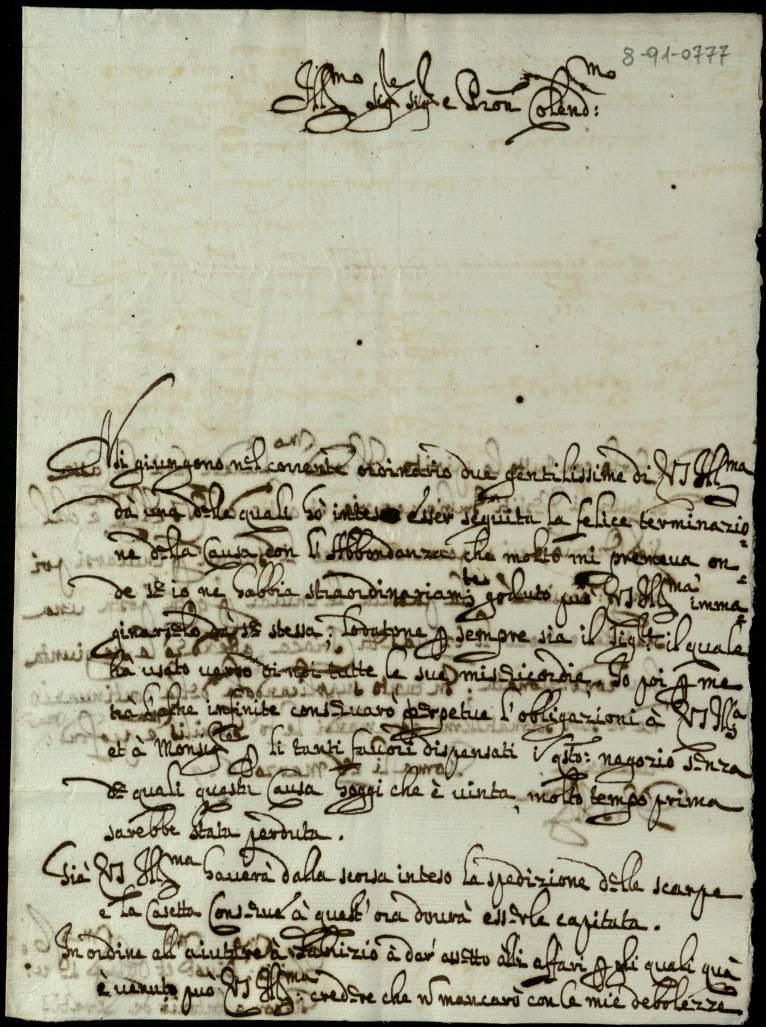 8-91-0777
Ill.mo sig.re sig.r e Pron Colend:mo
Mi giungono nel corrente ordinario due gentilissime di VS Ill.ma
dà una delle quali hò inteso esser seguita la felice terminazio=
ne della Causa con l'Abbondanza che molto mi premeva on=
de se io ne habbia straordinariam.te goduto può VS Ill.ma imma=
ginarselo dà se stessa; lodatone p sempre sia il Sig.re il quale
hà usato verso di noi tutte le sue misericordie. Io poi p me
trà l'altre infinite conservarò perpetue l'obligazioni à VS Ill.ma
et à Monsig.re p li tanti favori dispensati i qsto: negozio senza
de quali questa Causa hoggi che è vinta, molto tempo prima
sarebbe stata perduta.
Già VS Ill.ma haverà dalla scorsa inteso la spedizione delle scarpe
e la Casetta à quest'ora dovrà esserle capitata.
In ordine all'aiutare à Fabrizio à dar assetto alli affari p gli quali quà
è venuto può VS Ill.ma: credere che n mancarò con le mie debolezze